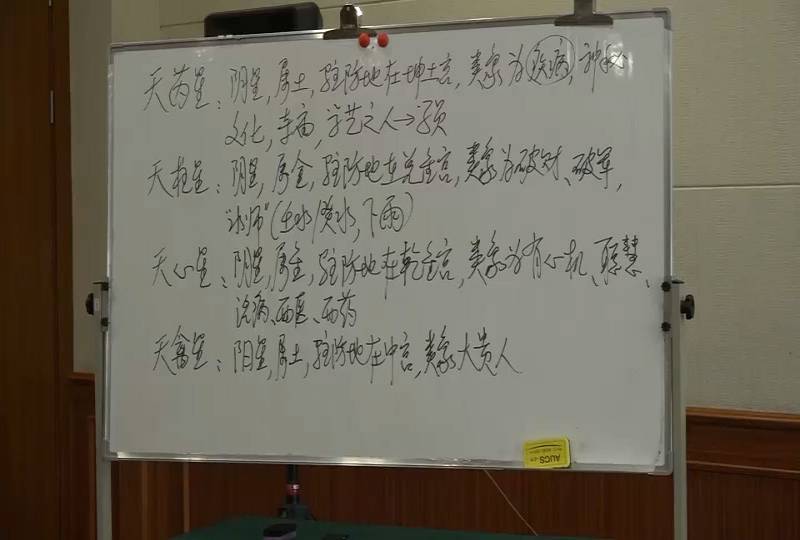 天芮星：阴星，属土，驻防地在坤土宫，类象为疾病，神秘
文化，寺庙，学艺之人→
天柱星：阴星，属金，驻防地在兑金宫，类象为破财、破军，
"水师"（壬水/癸水，下雨）
天心星：阴星，属金，驻防地在乾金宫，类象为有心机、聪慧、
治病、西医、西药
天禽星：阳星，属土，驻防地在中宫，类象大贵人
AUCS